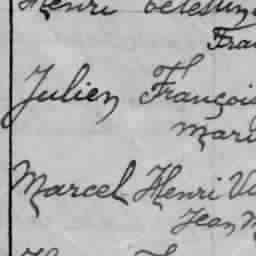 Henri Celestin
Fran
Julien François
Mari
Marcel Henri V
Jean M